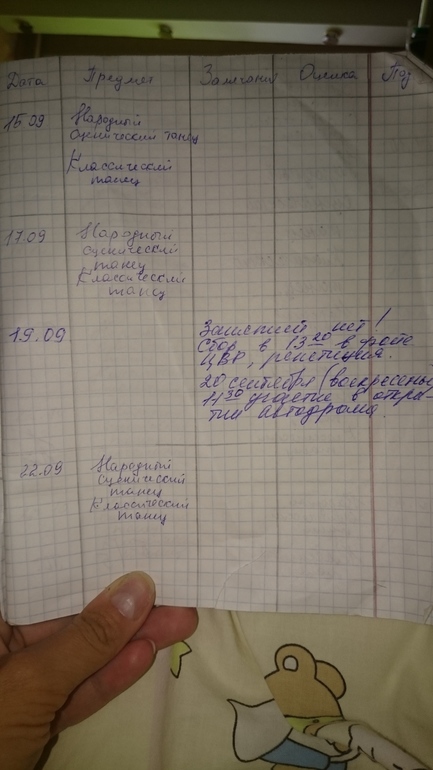 Дата Предмет Замечания Оценка Под
15.09 Народный
сценический танец
Классический
танец
17.09 Народный
сценический
танец
Классический
танец
19.09 Занятий нет!
Сбор в 13 20 в фойе
ЦВР, репетиция.
20 сентября (воскресенье
11 30 участие в откры-
тии автодрома.
22.09 Народный
сценический
танец
Классический
танец